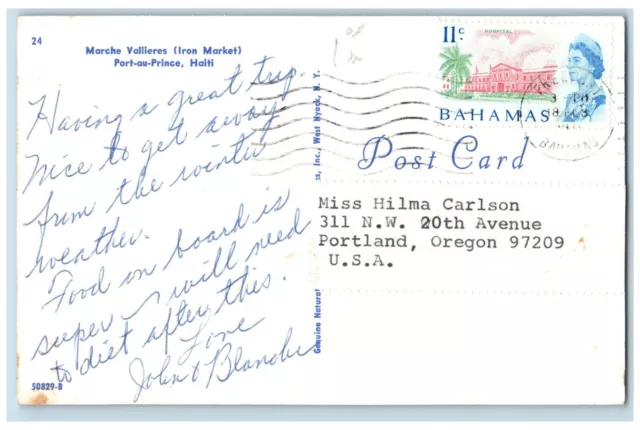 24
Marche Vallieres (Iron Market)
Port-au-Prince, Haiti
Having a great trip.
Nice to get away
from the winter
weather.
Food on board is
super & will need
to diet after this.
Love
John & Blanche
50829-B
Genuine Natural
ss, Inc., West Nyack, N. Y.
11c
HOSPITAL
BAHAMAS
BAHAMAS
Post Card
Miss Hilma Carlson
311 N.W. 20th Avenue
Portland, Oregon 97209
U.S.A.